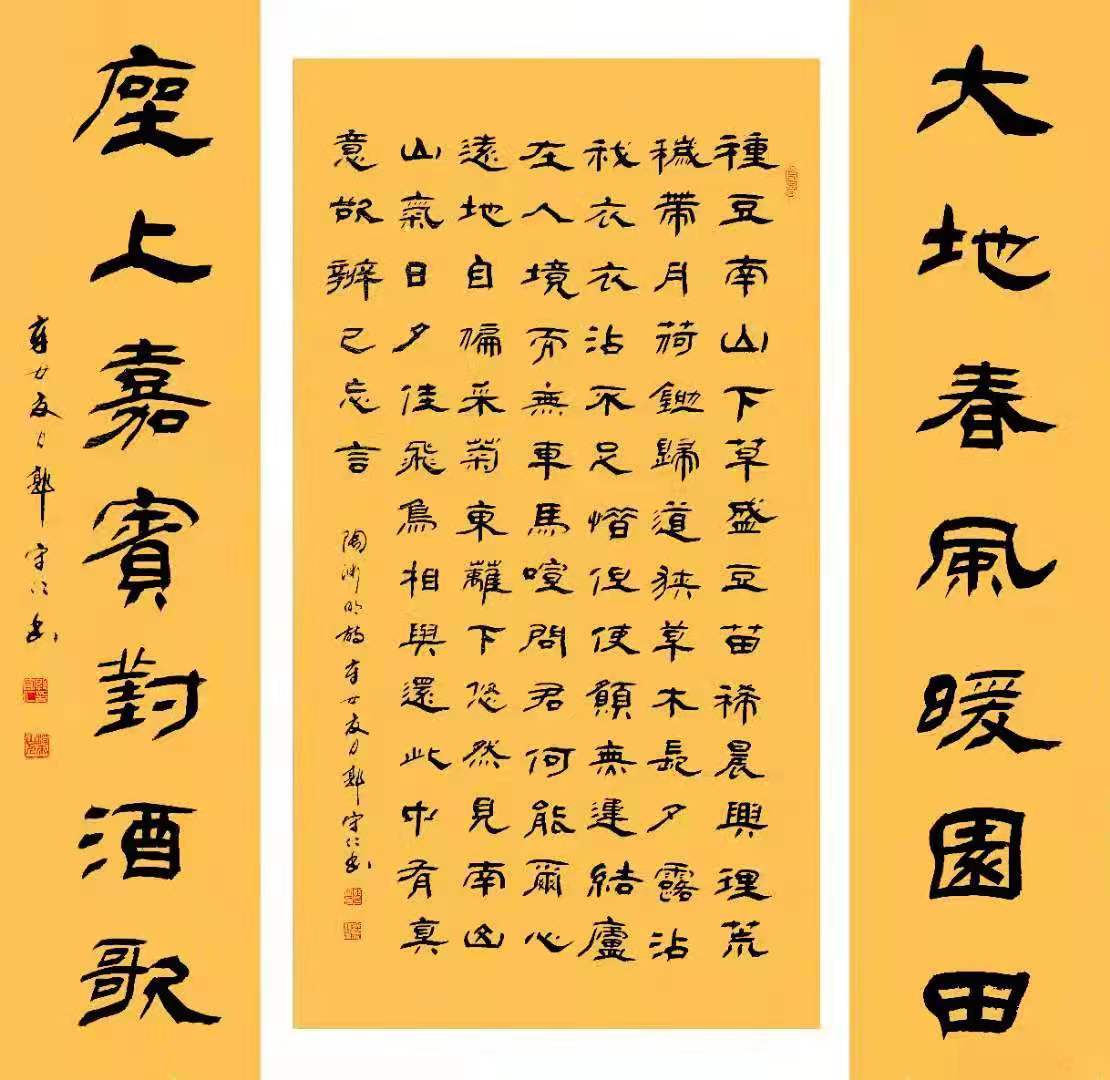 大地春風暖園田
種豆南山下草盛豆苗稀晨興理荒
穢帶月荷鋤歸道狹草木長夕露沾
我衣衣沾不足惜但使願無違結廬
在人境而無車馬喧問君何能爾心
遠地自偏采菊東籬下悠然見南山
山氣日夕佳飛鳥相與還此中有真
意欲辨已忘言
陶淵明詩 辛丑夏月 守仁書
座上嘉賓對酒歌
辛丑夏月 守仁書